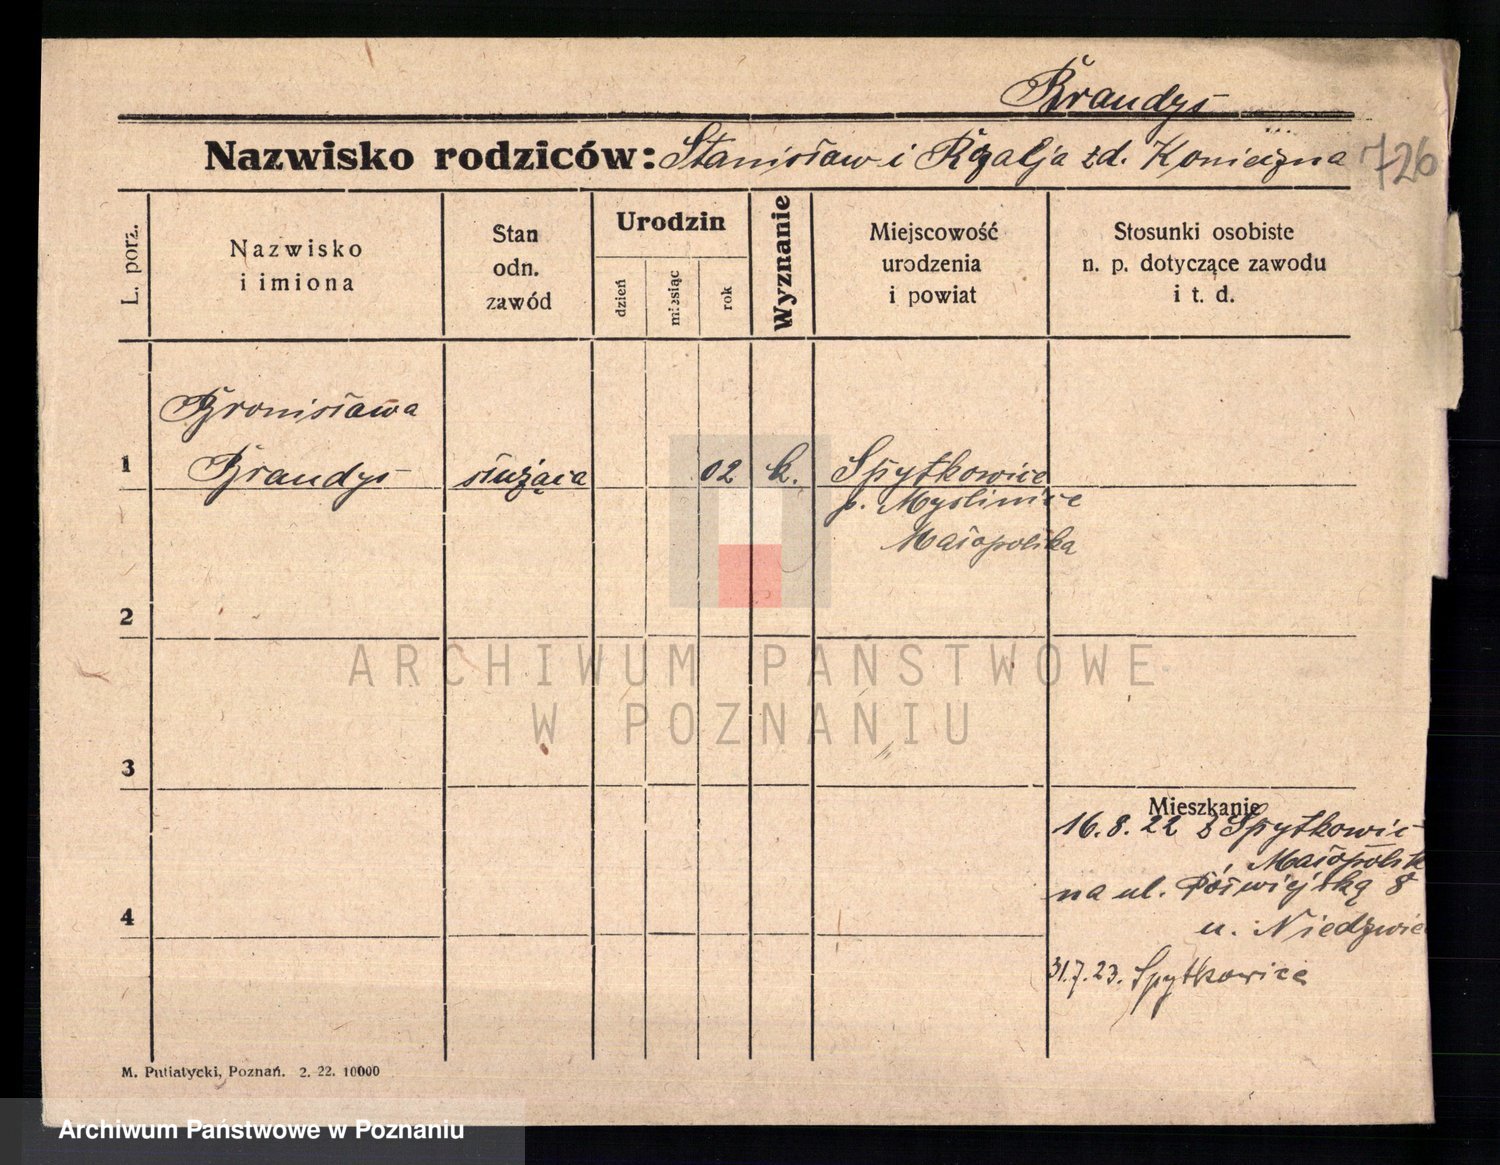 Brandys
Nazwisko rodziców: Stanisław i Rozalja zd. Konieczna 726
L. porz.
Nazwisko
i imiona
Stan
odn.
zawód
Urodzin
dzień
miesiąc
rok
Wyznanie
Miejscowość
urodzenia
i powiat
Stosunki osobiste
n. p. dotyczące zawodu
i t. d.
Bronisława
1 Brandys służąca 02 k. Spytkowice
p. Myslinice
Małopolska
2
ARCHIWUM PAŃSTWOWE
W POZNANIU
3
Mieszkanie
16.8.22 z Spytkowic
Małopolsk
na ul. Półwiejską 8
4
u. Niedzwie
31.7.23. Spytkowice
M. Putiatycki, Poznań. 2. 22. 10000
Archiwum Państwowe w Poznaniu